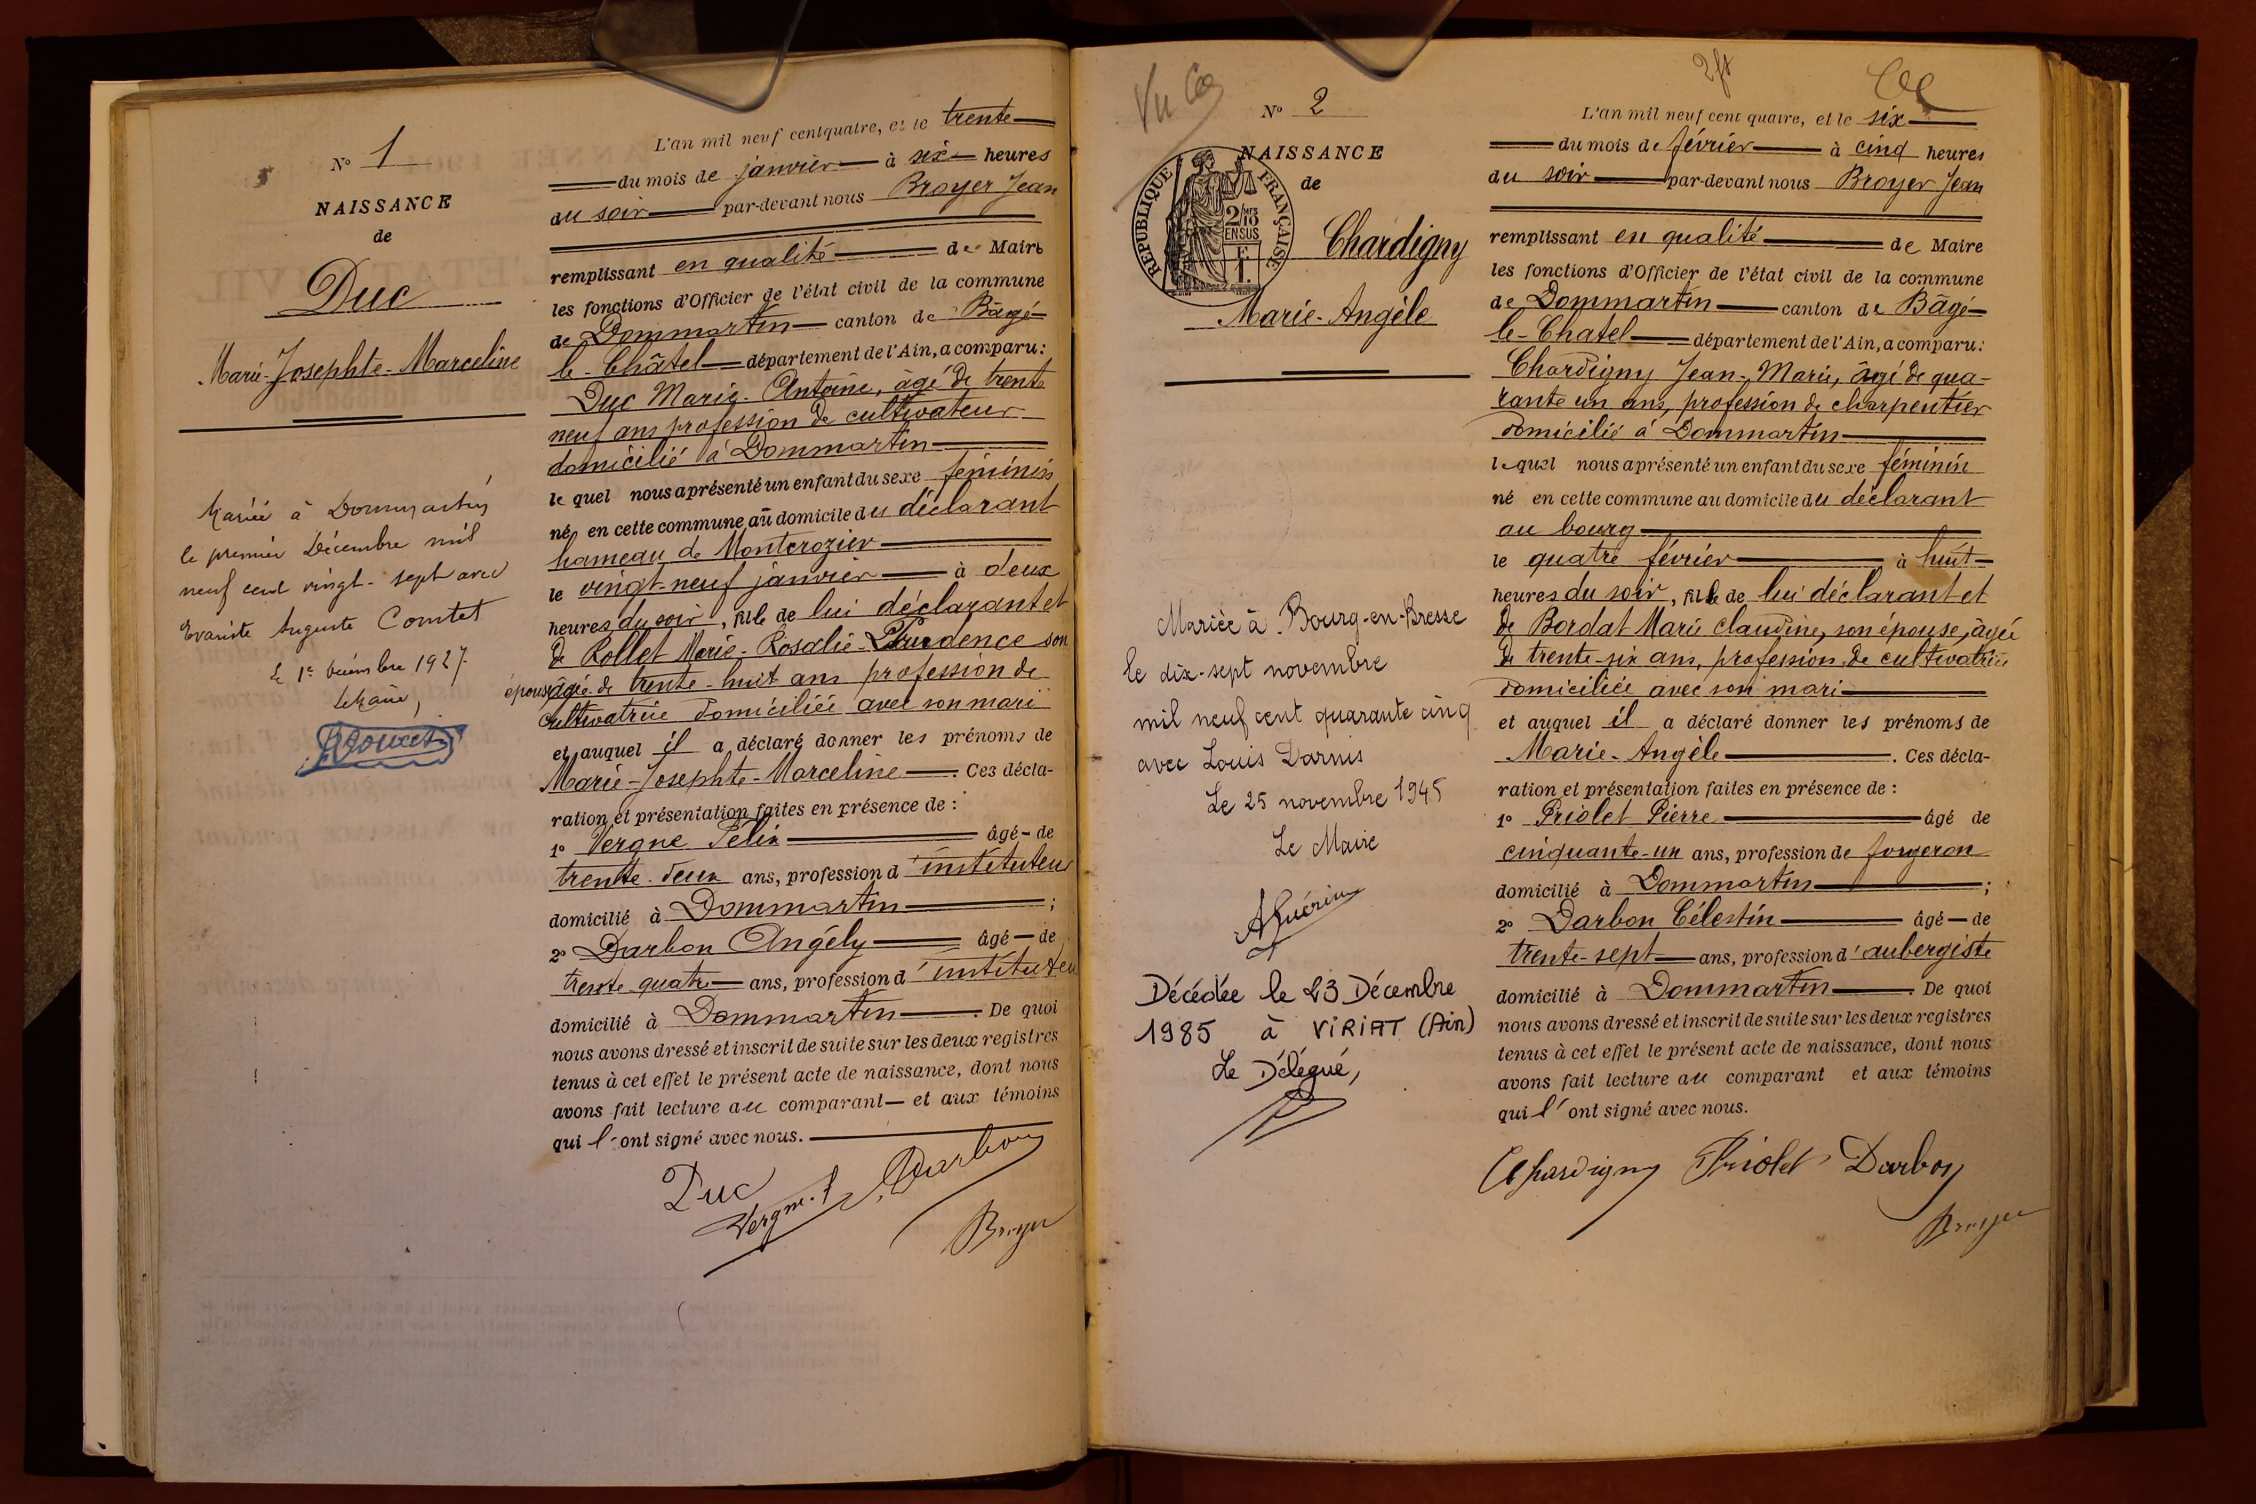 N° 1
NAISSANCE
de
Duc
Marie-Josephte-Marceline
Mariée à Dommartin
le premier Décembre mil
neuf cent vingt-sept avec
Evariste Auguste Comtet
Le 1er Décembre 1927
Le Maire,
L'an mil neuf cent quatre, et le trente
du mois de janvier à six heures
du soir par-devant nous Broyer Jean
remplissant en qualité de Maire
les fonctions d'Officier de l'état civil de la commune
de Dommartin canton de Bâgé-
le-Châtel département de l'Ain, a comparu:
Duc Marie-Antoine, âgé de trente
neuf ans profession de cultivateur
domicilié à Dommartin
lequel nous a présenté un enfant du sexe féminin
né en cette commune au domicile du déclarant
hameau de Montcrozier
le vingt-neuf janvier à deux
heures du soir, fille de lui déclarant et
de Rollet Marie-Rosalie-Prudence son
épouse âgée de trente-huit ans profession de
cultivatrice domiciliée avec son mari
et auquel il a déclaré donner les prénoms de
Marie-Josephte-Marceline. Ces décla-
ration et présentation faites en présence de :
1° Vergne Félix âgé de
trente-deux ans, profession d'instituteur
domicilié à Dommartin ;
2° Darbon Angély âgé de
trente-quatre ans, profession d'instituteu
domicilié à Dommartin. De quoi
nous avons dressé et inscrit de suite sur les deux registres
tenus à cet effet le présent acte de naissance, dont nous
avons fait lecture au comparant et aux témoins
qui l'ont signé avec nous.
Duc
Vergne. f
Darbon
Broyer
Vu
N° 2
NAISSANCE
de
REPUBLIQUE FRANÇAISE
2/10
EN SUS
Chardigny
Marie-Angèle
Mariée à Bourg-en-Bresse
le dix-sept novembre
mil neuf cent quarante cinq
avec Louis Darnis
Le 25 novembre 1945
Le Maire
AGuérin
Décédée le 23 Décembre
1985 à VIRIAT (Ain)
Le Délégué,
L'an mil neuf cent quatre, et le six
du mois de février à cinq heures
du soir par-devant nous Broyer Jean
remplissant en qualité de Maire
les fonctions d'Officier de l'état civil de la commune
de Dommartin canton de Bâgé-
le-Chatel département de l'Ain, a comparu:
Chardigny Jean-Marie, âgé de qua-
rante un ans, profession de charpentier
domicilié à Dommartin
lequel nous a présenté un enfant du sexe féminin
né en cette commune au domicile du déclarant
au bourg
le quatre février à huit
heures du soir, fille de lui déclarant et
de Bordat Marie Claudine, son épouse, âgée
de trente-six ans, profession de cultivatrice
domiciliée avec son mari
et auquel il a déclaré donner les prénoms de
Marie-Angèle. Ces décla-
ration et présentation faites en présence de :
1° Priolet Pierre âgé de
cinquante-un ans, profession de forgeron
domicilié à Dommartin ;
2° Darbon Célestin âgé de
trente-sept ans, profession d'aubergiste
domicilié à Dommartin. De quoi
nous avons dressé et inscrit de suite sur les deux registres
tenus à cet effet le présent acte de naissance, dont nous
avons fait lecture au comparant et aux témoins
qui l'ont signé avec nous.
Chardigny Priolet Darbon
Broyer